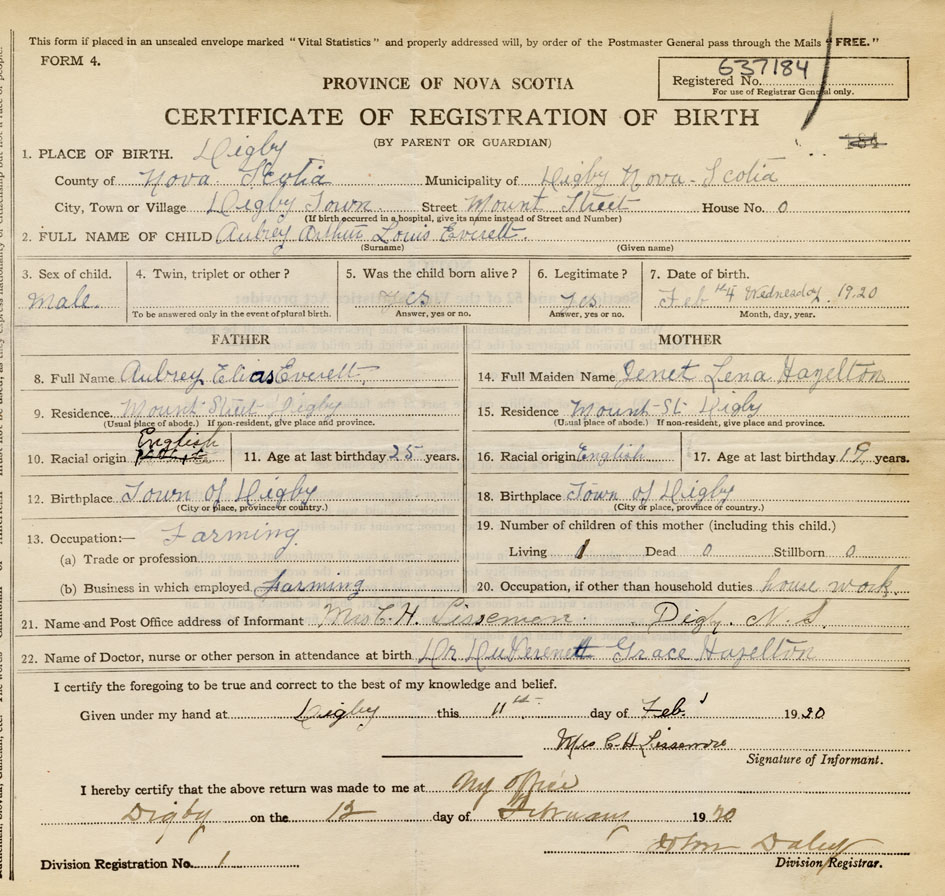 This form if placed in an unsealed envelope marked "Vital Statistics" and properly addressed will, by order of the Postmaster General pass through the Mails "FREE."
FORM 4.
637184
Registered No.
For use of Registrar General only.
PROVINCE OF NOVA SCOTIA
CERTIFICATE OF REGISTRATION OF BIRTH
(BY PARENT OR GUARDIAN)
1. PLACE OF BIRTH. Digby
County of Nova Scotia Municipality of Digby Nova-Scotia
City, Town or Village Digby Town. Street Mount Street House No. 0
(If birth occurred in a hospital, give its name instead of Street and Number)
2. FULL NAME OF CHILD Aubrey Arthur Louis Everett.
(Surname) (Given name)
3. Sex of child. 4. Twin, triplet or other? 5. Was the child born alive? 6. Legitimate? 7. Date of birth.
male. yes yes Feb 4 Wednesday. 1920
To be answered only in the event of plural birth. Answer, yes or no. Answer, yes or no. Month, day, year.
FATHER MOTHER
8. Full Name Aubrey Elias Everett, 14. Full Maiden Name Jenet Lena Hazelton
9. Residence. Mount Street Digby 15. Residence Mount-St Digby
(Usual place of abode.) If non-resident, give place and province. (Usual place of abode.) If non-resident, give place and province.
10. Racial origin English 11. Age at last birthday 25 years. 16. Racial origin English 17. Age at last birthday 19 years.
12. Birthplace Town of Digby 18. Birthplace Town of Digby
(City or place, province or country.) (City or place, province or country.)
13. Occupation:— Farming. 19. Number of children of this mother (including this child.)
(a) Trade or profession Living 1 Dead 0 Stillborn 0
(b) Business in which employed farming 20. Occupation, if other than household duties house work.
21. Name and Post Office address of Informant Mrs C. H. Lissemon. Digby. N. S.
22. Name of Doctor, nurse or other person in attendance at birth Dr Grace Hazelton
I certify the foregoing to be true and correct to the best of my knowledge and belief.
Given under my hand at Digby this 11th day of Feb. 1920
Mrs C H Lissemore
Signature of Informant.
I hereby certify that the above return was made to me at My Office
Digby on the 12 day of February 1920
John Daley
Division Registrar.
Division Registration No. 1